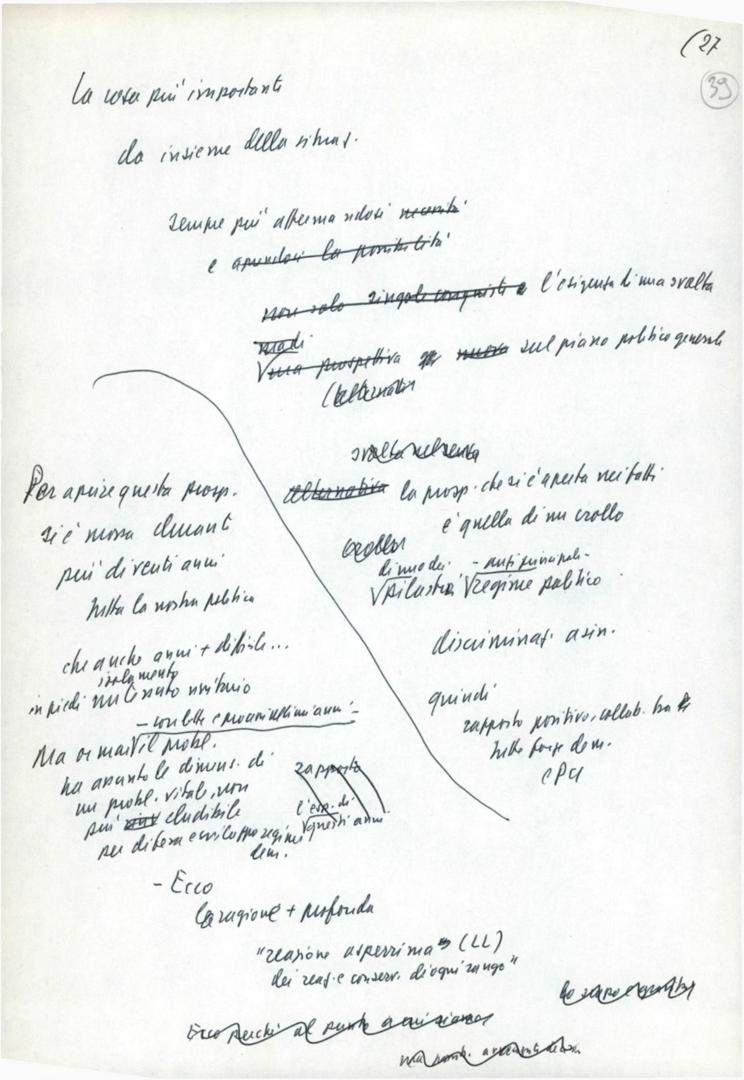 (27
39
La cosa più importante
da insieme della situaz.
sempre più affermandosi necessità
e aprendosi la possibilità
non solo singole conquiste e l'esigenza di una svolta
una prospettiva nuova sul piano politico generale
(alternativa
svolta
alternativa la prosp. che si è aperta nei fatti
è quella di un crollo
crollo
di uno dei - anti principali -
pilastri regime politico
discriminaz. a sin.
quindi
rapporto positivo, collab. tra
tutte forze dem.
e PCI
Per aprire questa prosp.
si è mossa durante
più di venti anni
tutta la nostra politica
che anche anni + difficile...
isolamento
in piedi un tessuto unitario
- con lotte
Ma ormai il probl.
ha assunto le dimens. di
un probl. vitale, non
più eludibile
per difesa e sviluppo regime
dem.
rapporto
l'esp. di
questi anni
- Ecco
la ragione + profonda
"reazione asperrima" (LL)
dei reaz. e conserv. di ogni rango"
Ecco perché al punto a cui siamo